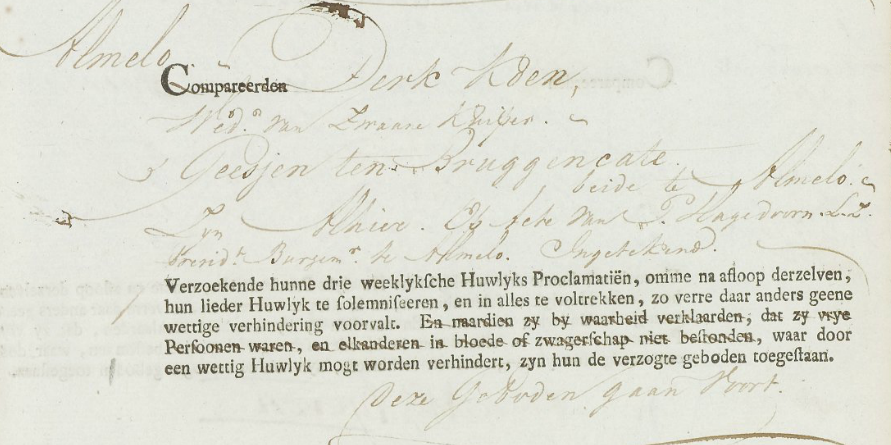 Almelo
Compareerden Derk Kden,
Wed.^e van Zwaare Kuiper.
& Geesjen ten Bruggencate.
beide te Almelo.
Zyn Alhier. Ex Acte van P. Hagedoorn. L.Z.
Presid.^t Burgem.^r te Almelo. Ingetekend.
Verzoekende hunne drie weeklyksche Huwlyks Proclamatiën, omme na afloop derzelven,
hun lieder Huwlyk te solemniseeren, en in alles te voltrekken, zo verre daar anders geene
wettige verhindering voorvalt. En naardien zy by waarheid verklaarden, dat zy vrye
Persoonen waren, en elkanderen in bloede of zwagerschap niet bestonden, waar door
een wettig Huwlyk mogt worden verhindert, zyn hun de verzogte geboden toegestaan.
Deze Geboden gaan Voort.